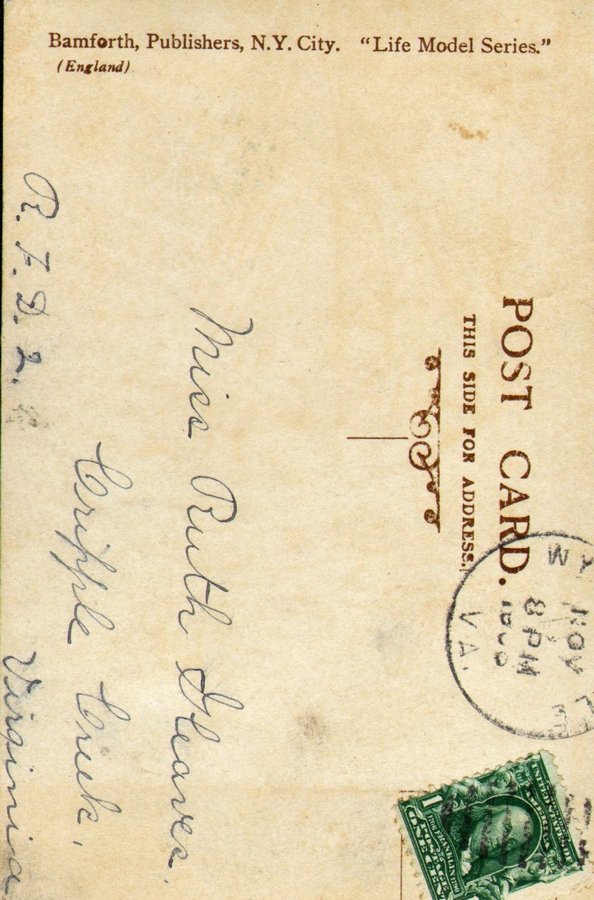 Bamforth, Publishers, N.Y. City. "Life Model Series."
(England)
POST CARD.
THIS SIDE FOR ADDRESS.
NOV
8 PM
VA.
1
Miss Ruth Gleaves.
Cripple Creek,
Virginia
R. F. D. 2.